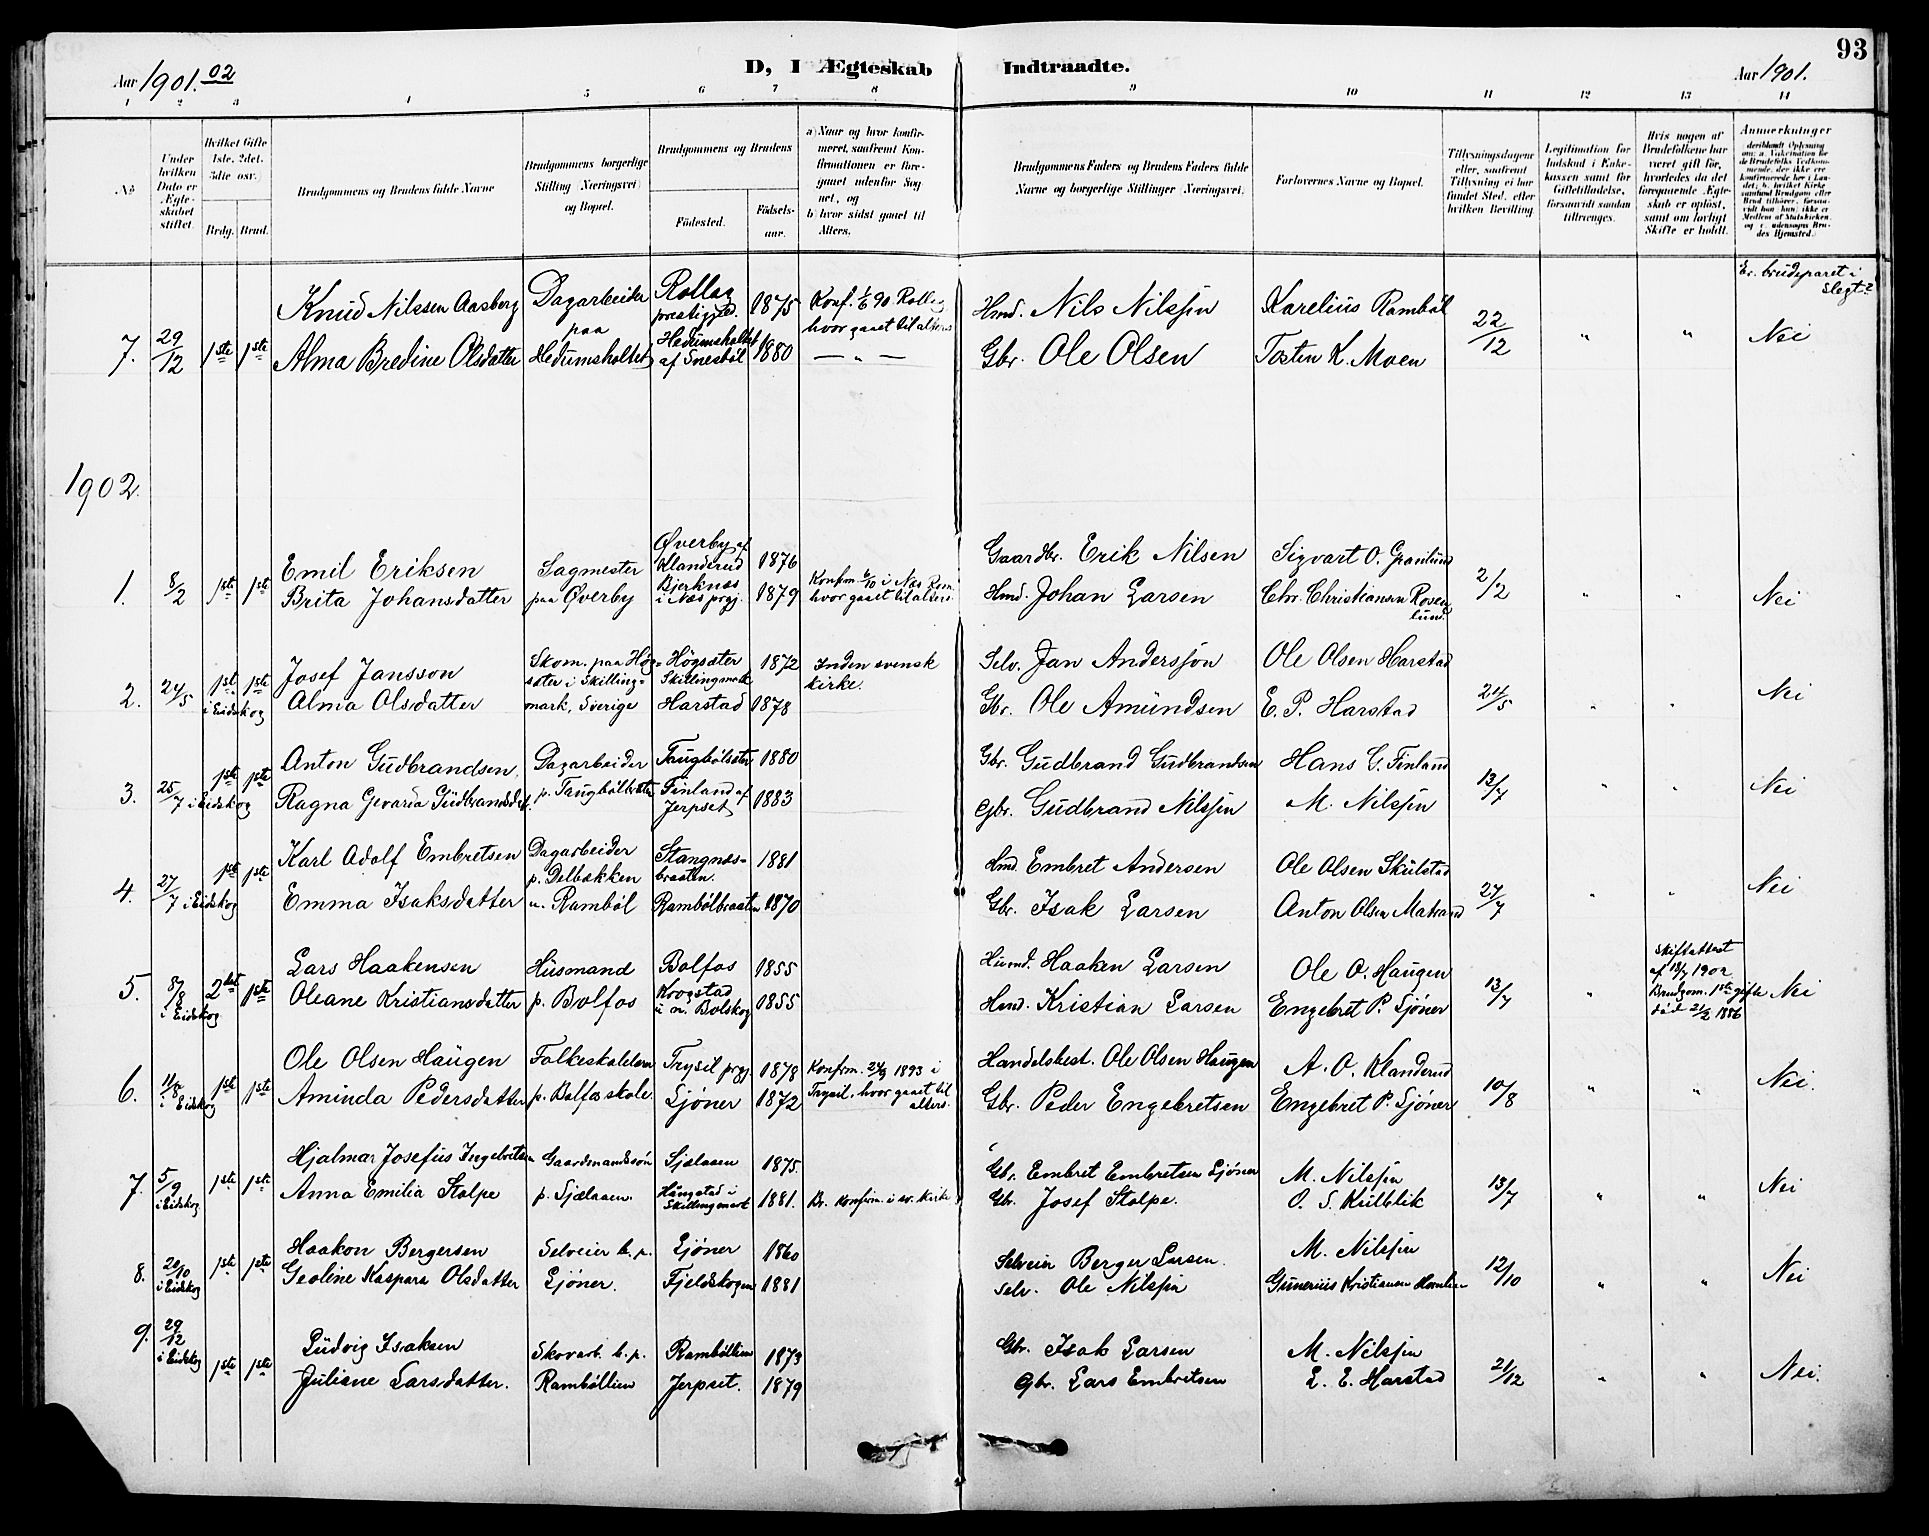 93
Aar 1901. 02
D, I Ægteskab Indtraadte.
Aar 1901.
1 2 3 4 5 6 7 8 9 10 11 12 13 14
No
Under hvilken Dato er Ægteskabet stiftet.
Hvilket Gifte 1ste. 2det. 3dte osv.)
Brdg. Brud.
Brudgommens og Brudens fulde Navne
Brudgommens borgerlige Stilling (Næringsvei) og Bopæl.
Brudgommens og Brudens
Fødested. Fødselsaar.
a) Naar og hvor konfirmeret, saafremt Konfirmationen er foregaaet udenfor Sognet, og
b) hvor sidst gaaet til Alters.
Brudgommens Faders og Brudens Faders fulde Navne og borgerlige Stillinger (Næringsvei).
Forlovernes Navne og Bopæl.
Tillysningsdagene eller, saafremt Tillysning ei har fundet Sted, efter hvilken Bevilling.
Legitimation for Indskud i Enkekassen samt for Giftetilladelse, forsaavidt saadan tiltrænges.
Hvis nogen af Brudefolkene har været gift før, hvorledes da det foregaaende Ægteskab er opløst, samt om lovligt Skifte er holdt.
Anmerkninger
deriblandt Oplysning om: a. Vakcination for de Brudefolks Vedkommende, der ikke ere konfirmerede her i Landet; b. hvilket Kirkesamfund Brudgom eller Brud tilhører, forsaavidt han (hun) ikke er Medlem af Statskirken, og c. udensogns Brudes Hjemsted.
Er brudeparet i slegt?
7. 29/12 1ste 1ste
Knud Nilssen Aasberg
Alma Bredine Olsdatter
Dagarbeider paa Hedumsholtet
Rollag prestigjeld. 1875
Hedumsholtet af Snesbøl 1880
Konf. 1/6 90. Rollag hvor gaaet til alters
— „ —
Hmd. Nils Nilssen
Gbr. Ole Olsen
Karelius Rambøl
Tosten K. Moen
22/12 " " Nei
1902.
1. 8/2 1ste 1ste
Emil Eriksen
Brita Johansdatter
Sagmester paa Øverby
Øverby af Klanderud 1876
Bjerknæs i Næs prgj. 1879
Konfirm. 6/10 i Næs Rom. hvor gaaet til alters.
Gaardbr. Erik Nilsen
Hmd. Johan Larsen
Sigvart O. Granlund
Chr. Christiansen Rosenlund.
2/2 " " Nei
2. 24/5 i Eidskog 1ste 1ste
Josef Jansson
Alma Olsdatter
Skom. paa Högsäter i Skillingmark, Sverige
Högsäter Skillingmark 1872
Harstad 1878
Inden svensk kirke.
Selv. Jan Andersson
Gbr. Ole Amundsen
Ole Olsen Harstad
E. P. Harstad
24/5 " " Nei
3. 25/7 i Eidskog 1ste 1ste
Anton Gudbrandsen
Ragna Gevaria Gudbrandsdat.
Dagarbeider p. Taugbølsæter
Taugbølsæter 1880
Finland af Jerpset 1883
Gbr. Gudbrand Gudbrandsen
Gbr. Gudbrand Nilssen
Hans G. Finland
M. Nilssen
13/7 " " Nei
4. 27/7 i Eidskog 1ste 1ste
Karl Adolf Embretsen
Emma Isaksdatter
Dagarbeider p. Delbækken u. Rambøl
Stangnæsbraaten. 1881
Rambølbraaten 1870
Hmd. Embret Andersen
Gbr. Isak Larsen
Ole Olsen Skulstad
Anton Olsen Matrand
27/7 " " Nei
5. 8/8 i Eidskog 2det 1ste
Lars Haakensen
Oleane Kristiansdatter
Husmand p. Bolfos
Bolfos 1855
Krogstad u. n. Bolskog 1855
Husmd. Haaken Larsen
Hmd. Kristian Larsen
Ole O. Haugen
Engebret P. Sjöner
13/7 "
Skifteattest af 18/7 1902
Brudgom. 1ste gifte död 21/2 1886
Nei
6. 11/8 i Eidskog 1ste 1ste
Ole Olsen Haugen
Aminda Pedersdatter
Folkeskolelærer p. Bolfos skole
Trysil prgj. 1878
Sjöner 1872
Konfirm. 24/9 1893 i Trysil, hvor gaaet til alters.
Handelsbest. Ole Olsen Haugen
Gbr. Peder Engebretsen
A. O. Klanderud
Engebret P. Sjöner
10/8 " " Nei.
7. 5/9 i Eidskog 1ste 1ste
Hjalmar Josefus Ingebretsen
Anna Emilia Stolpe
Gaardmandssön p. Sjælaasen.
Sjælaasen 1875
Skillingmark 1881.
Br. Konfirm. i sv. Kirke
Gbr. Embret Embretsen Sjöner
Gbr. Josef Stolpe.
M. Nilssen
O. S. Kulblik
13/7 " " Nei
8. 20/10 i Eidskog 1ste 1ste
Haakon Bergersen
Geoline Kaspara Olsdatter
Selveier b. p. Sjöner.
Sjöner 1860
Fjeldskogen 1881
Selveier Berger Larsen.
Selv. Ole Nilssen
M. Nilssen
Gunerius Kristiansen
12/10 " " Nei
9. 29/12 i Eidskog 1ste 1ste
Ludvig Isaksen
Juliane Larsdatter.
Skovarb. b. p. Rambøllien
Rambøllien 1873
Jerpset. 1879
Gbr. Isak Larsen
Gbr. Lars Embretsen
M. Nilssen
L. E. Harstad
21/12 " " Nei.